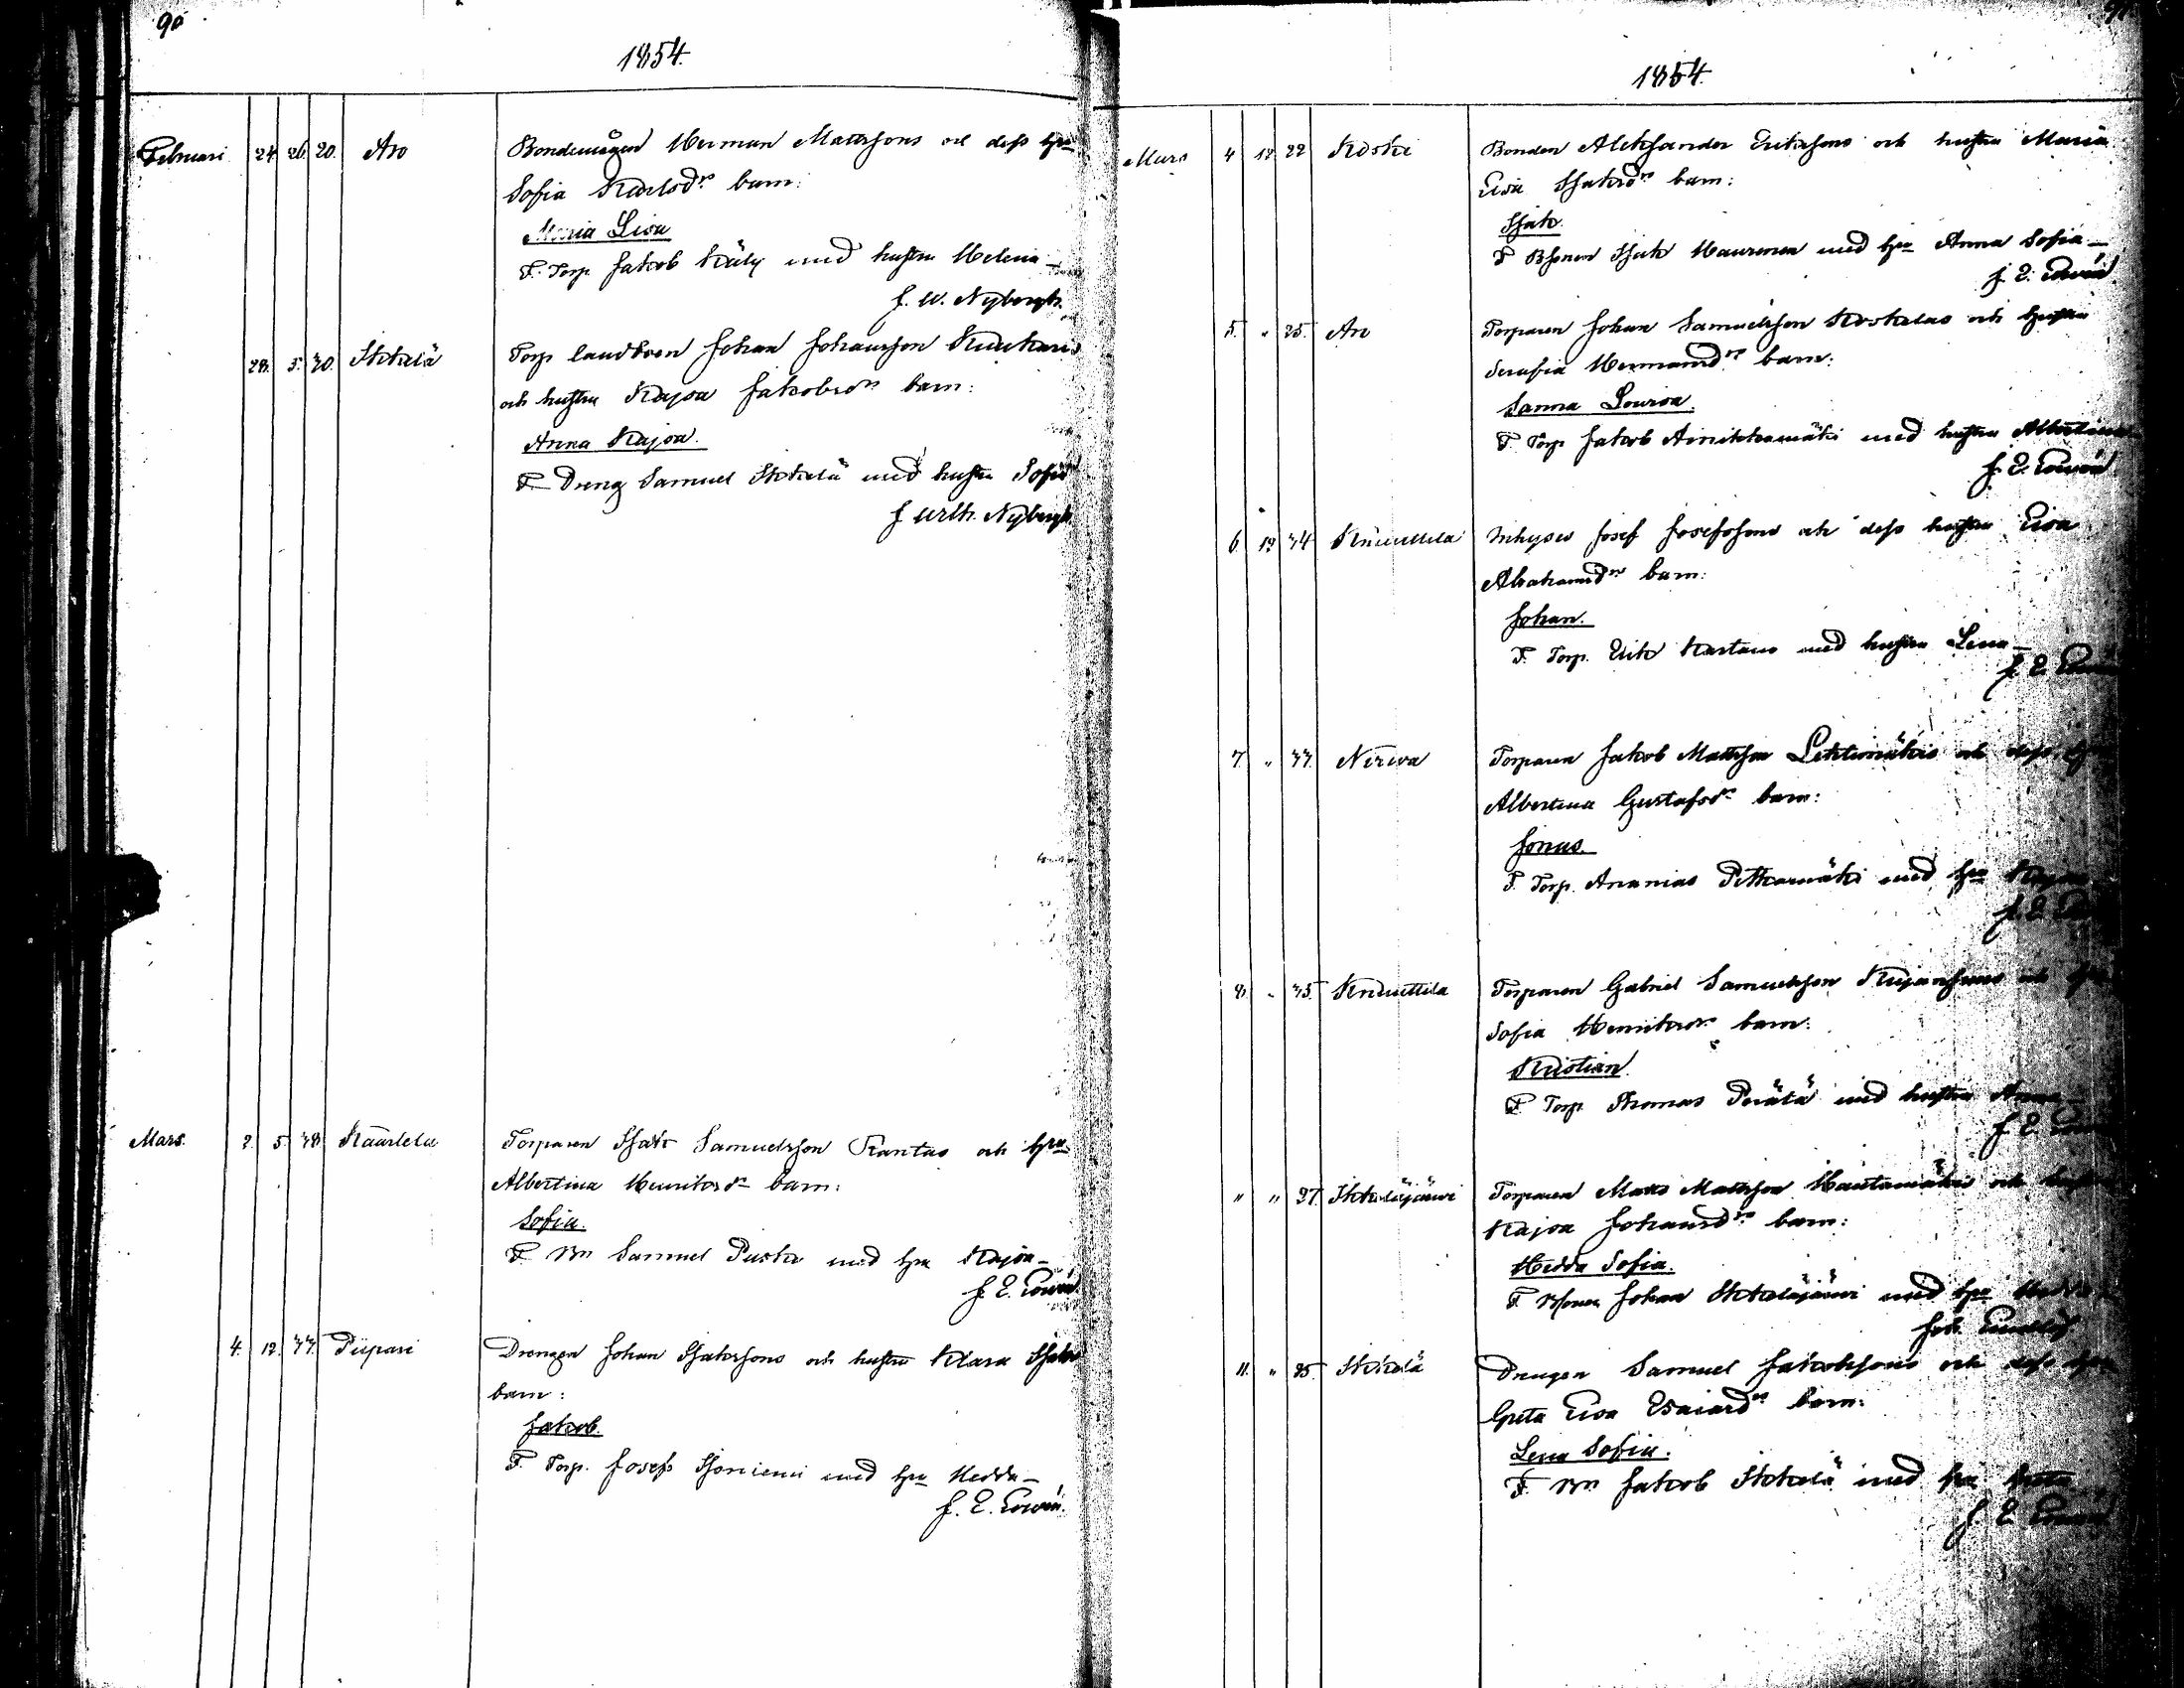 90
1854.
Februari 24 26. 20. Aro Bondemågen Herman Mattssons och dess hru
Sofia Karlsdr barn:
Maria Lisa
F. Torp Jakob Käly med hustru Helena
J. W. Nybergh.
28. 5. 30. Ikkelä Torp landboen Johan Johansson
och hustru Kajsa Jakobsdr barn:
Anna Kajsa.
F Dreng Samuel Ikkelä med hustru Sofia
J Wilh. Nybergh
Mars. 2. 5 38 Kaarlela Torparen Isak Samuelsson Rantas och hru
Albertina Henriksdr barn:
Sofia.
F Bn Samuel Puska med hru Kajsa
J. E.
4. 12. 37. Piipari Drengen Johan Isakssons och hustru Klara
barn:
Jakob.
F. Torp. Josef Isoniemi med hru Hedda
J. E.
1854.
Mars 4 12 22 Koski Bonden Aleksander Erikssons och hustru Maria
Lisa Isaksdr barn:
Isak.
F Bsonen Isak Haurunen med hru Anna Sofia
J. E.
5. " 25. Aro Torparen Johan Samuelsson Koskelas och hustru
Serafia Hermansdr barn:
Sanna Lovisa.
F Torp Jakob med hustru Albertina
J. E.
6. 12 34 Knuuttila Inhyses Josef Josefssons och dess hustru Lisa
Abrahamsdr barn:
Johan.
F. Torp. Erik Rantas med hustru Lena
J. E.
7. " 37. Nirva Torparen Jakob Mattsson Lehtimäkis och dess
Albertina Gustafsdr barn:
Jonas.
F. Torp. Ananias Pitkämäki med hru Kajsa
J. E.
8. " 35. Knuuttila Torparen Gabriel Samuelsson och
Sofia Henriksdr barn:
Kristian.
F Torp Thomas Perälä med hustru Anna
J E
" " 27. Ikkeläjärvi Torparen Matts Mattsson Hautamäkis och hustru
Kajsa Johansdr barn:
Hedda Sofia.
F. Bsonen Johan Ikkeläjärvi med hru Hedda
Joh.
11. " 35. Ikkelä Drengen Samuel Jakobssons och dess
Greta Lisa Esaiasdr barn:
Lena Sofia.
F. Bn Jakob Ikkelä med hru
J E